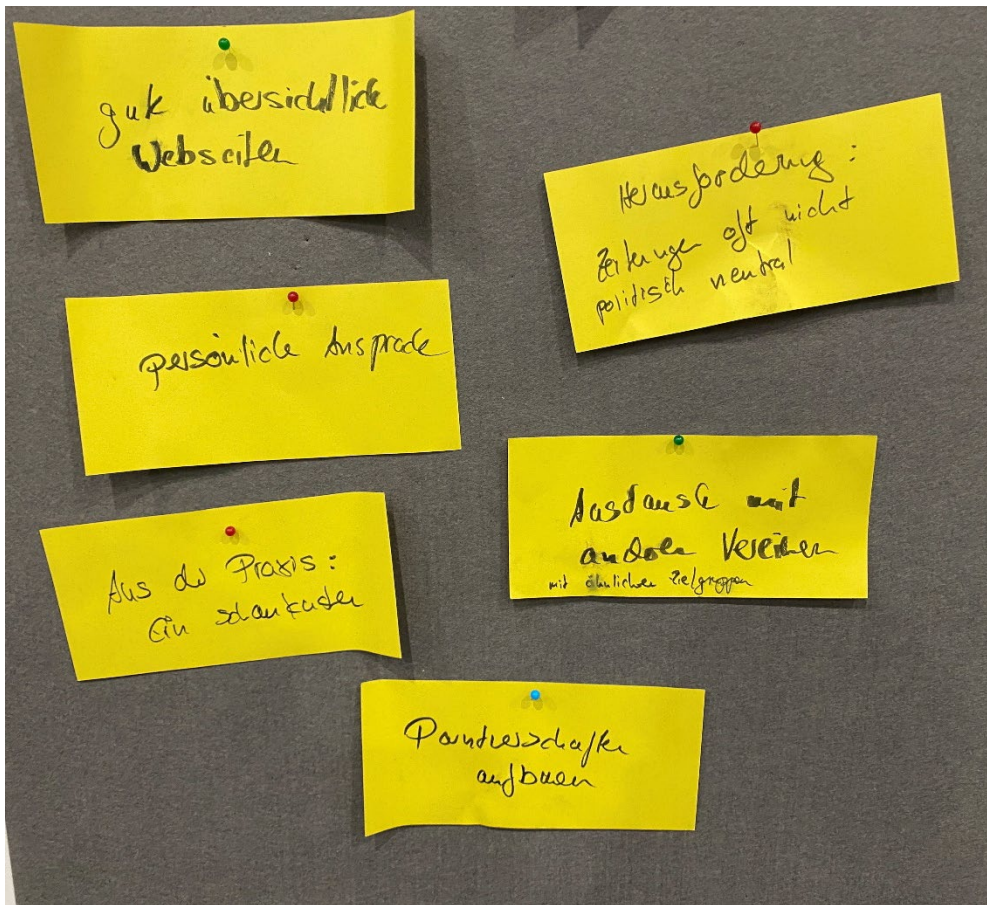 gute übersichtliche
Webseiten
Herausforderung:
Zeitungen oft nicht
politisch neutral
persönliche Ansprache
Austausch mit
anderen Vereinen
mit ähnlichen Zielgruppen
Aus der Praxis:
Ein Schaukasten
Partnerschaften
aufbauen